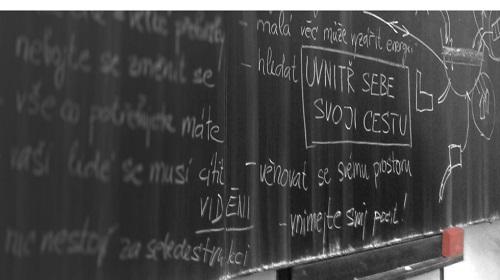 nebojte se změnit se
- vše co potřebujete máte
vaši lidé se musí cítit
VIDĚNI
nic nestojí za sebedestrukci
- malá věc může vyzářit energii
- hledat UVNITŘ SEBE
SVOJI CESTU
- věnovat se svému prostoru
- vnímejte svůj pocit!